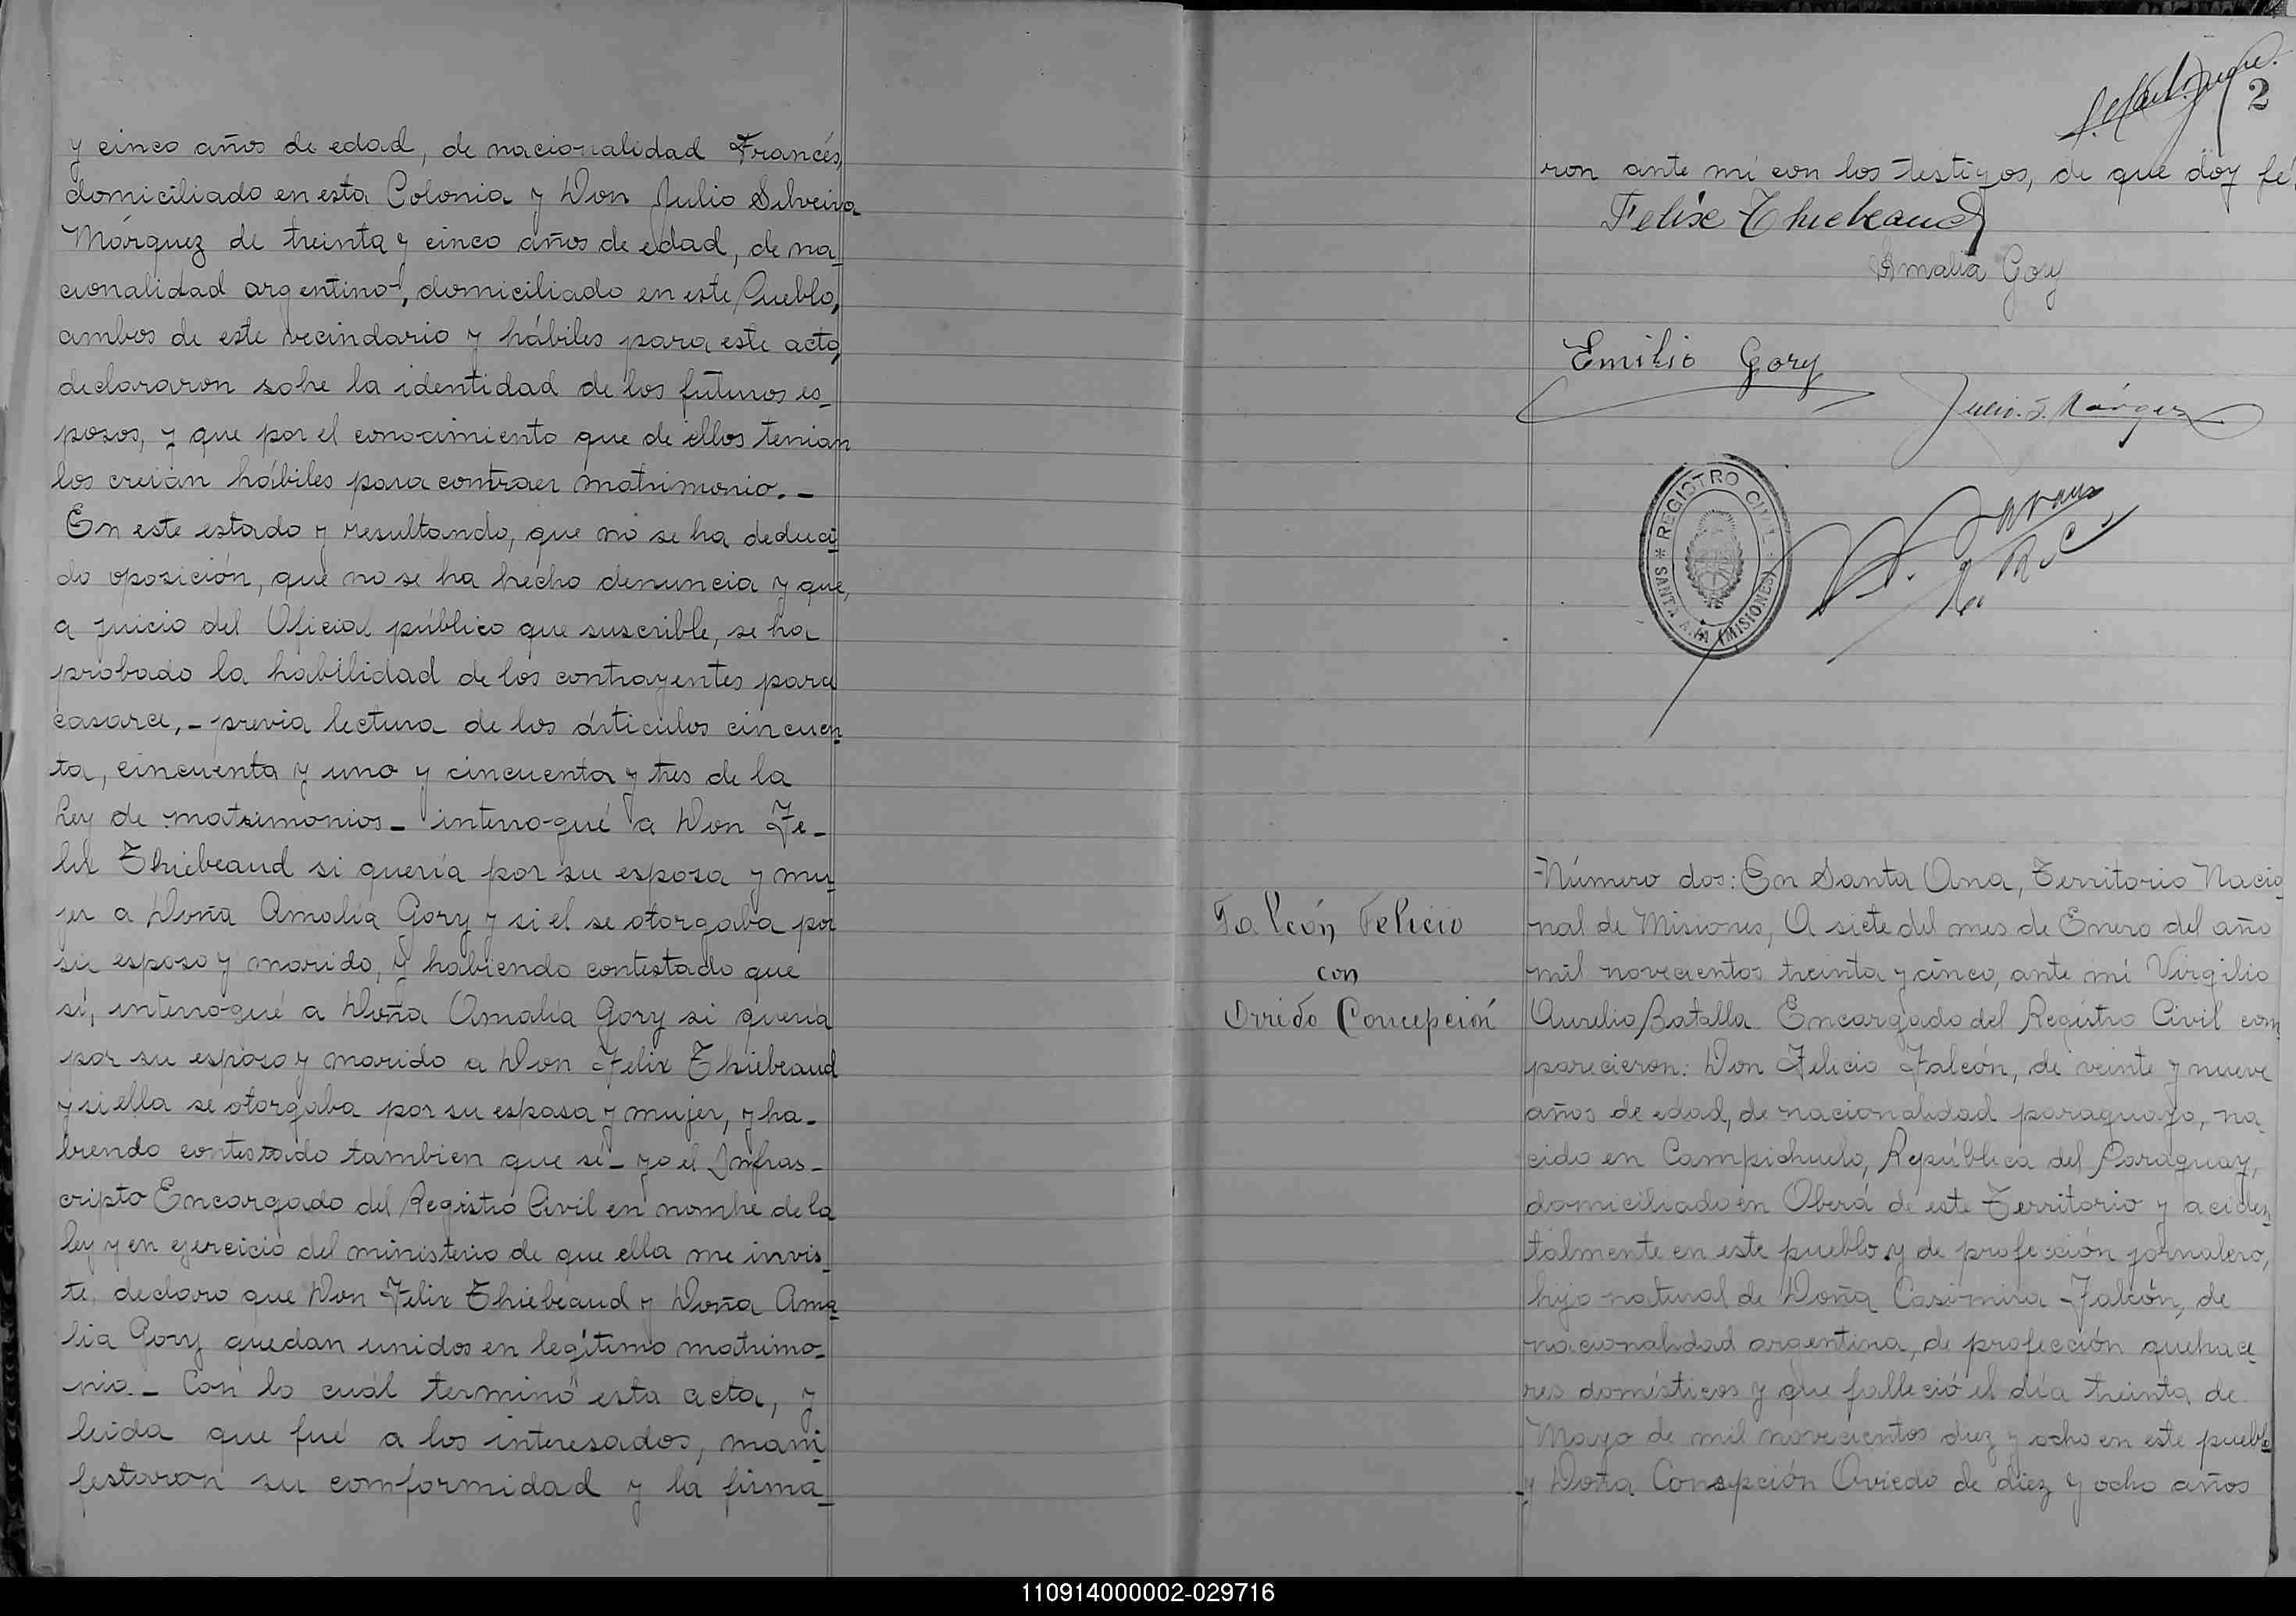 y cinco años de edad, de nacionalidad Francés,
domiciliado en esta Colonia y Don Julio Silveira
Márquez de treinta y cinco años de edad, de na_
cionalidad argentino, domiciliado en este Pueblo,
ambos de este vecindario y hábiles para este acto,
declararon sobre la identidad de los futuros es_
posos, y que por el conocimiento que de ellos tenian
los creian hábiles para contraer matrimonio._
En este estado y resultando, que no se ha deduci_
do oposición, que no se ha hecho denuncia y que,
a juicio del Oficial público que suscrible, se ha
probado la habilidad de los contrayentes para
casarce,_ previa lectura de los ártículos cincuen_
ta, cincuenta y uno y cincuenta y tres de la
Ley de matrimonios_ interrogué a Don Fe_
lix Thiebeaud si quería por su esposa y mu_
jer a Doña Amalia Gory y si el se otorgaba por
su esposo y marido, y habiendo contestado que
sí, interrogué a Doña Amalia Gory si quería
por su esposo y marido a Don Felix Thiebeaud
y si ella se otorgaba por su esposa y mujer, y ha_
biendo contestado tambien que sí_ yo el Infras_
cripto Encargado del Registro Civil en nombre de la
ley y en ejercicio del ministerio de que ella me invis_
te, declaro que Don Felix Thiebeaud y Doña Ama_
lia Gory quedan unidos en legítimo matrimo_
nio._ Con lo cuál terminó esta acta, y
leida que fué a los interesados, mani_
festaron su conformidad y la firma_
2
ron ante mi con los testigos, de que doy fé
Felix Thiebeaud
Amalia Gory
Emilio Gory
Julio. S. Márquez
REGISTRO CIVIL
SANTA ANA (MISIONES)
E. R. C.
Falcón Felicio
con
Orriedo Concepción
Número dos: En Santa Ana, Territorio Nacio_
nal de Misiones, A siete del mes de Enero del año
mil novecientos treinta y cinco, ante mí Virgilio
Aurelio Batalla Encargado del Registro Civil com_
parecieron: Don Felicio Falcón, de veinte y nueve
años de edad, de nacionalidad paraguayo, na_
cido en Campichuelo, República del Paraguay,
domiciliado en Oberá de este Territorio y aciden_
talmente en este pueblo y de profección jornalero,
hijo natural de Doña Casimira Falcón, de
nacionalidad argentina, de profección quehace_
res domésticos y que falleció el día treinta de
Mayo de mil novecientos diez y ocho en este pueblo_
y Doña Consepción Oviedo de diez y ocho años
110914000002-029716